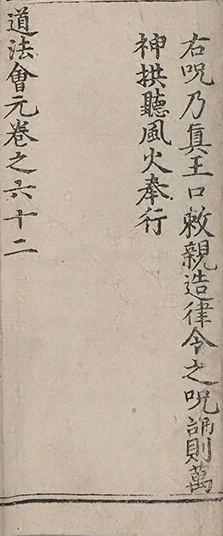 右呪乃眞王口敕親造律令之呪誦則萬
神拱聽風火奉行
道法會元卷之六十二